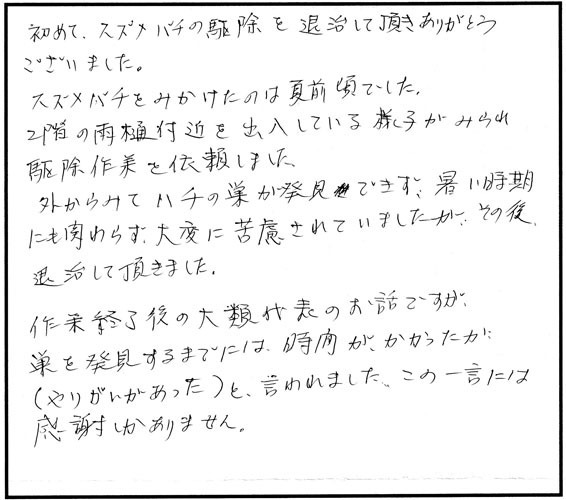 初めて、スズメバチの駆除を退治して頂きありがとう
ございました。
スズメバチをみかけたのは夏前頃でした。
2階の雨樋付近を出入している様子がみられ
駆除作業を依頼しました。
外からみてハチの巣が発見できず、暑い時期
にも関わらず、大変に苦慮されていましたが、その後、
退治して頂きました。
作業終了後の大類代表のお話ですが、
巣を発見するまでには、時間が、かかったが
(やりがいがあった)と、言われました。この一言には
感謝しかありません。